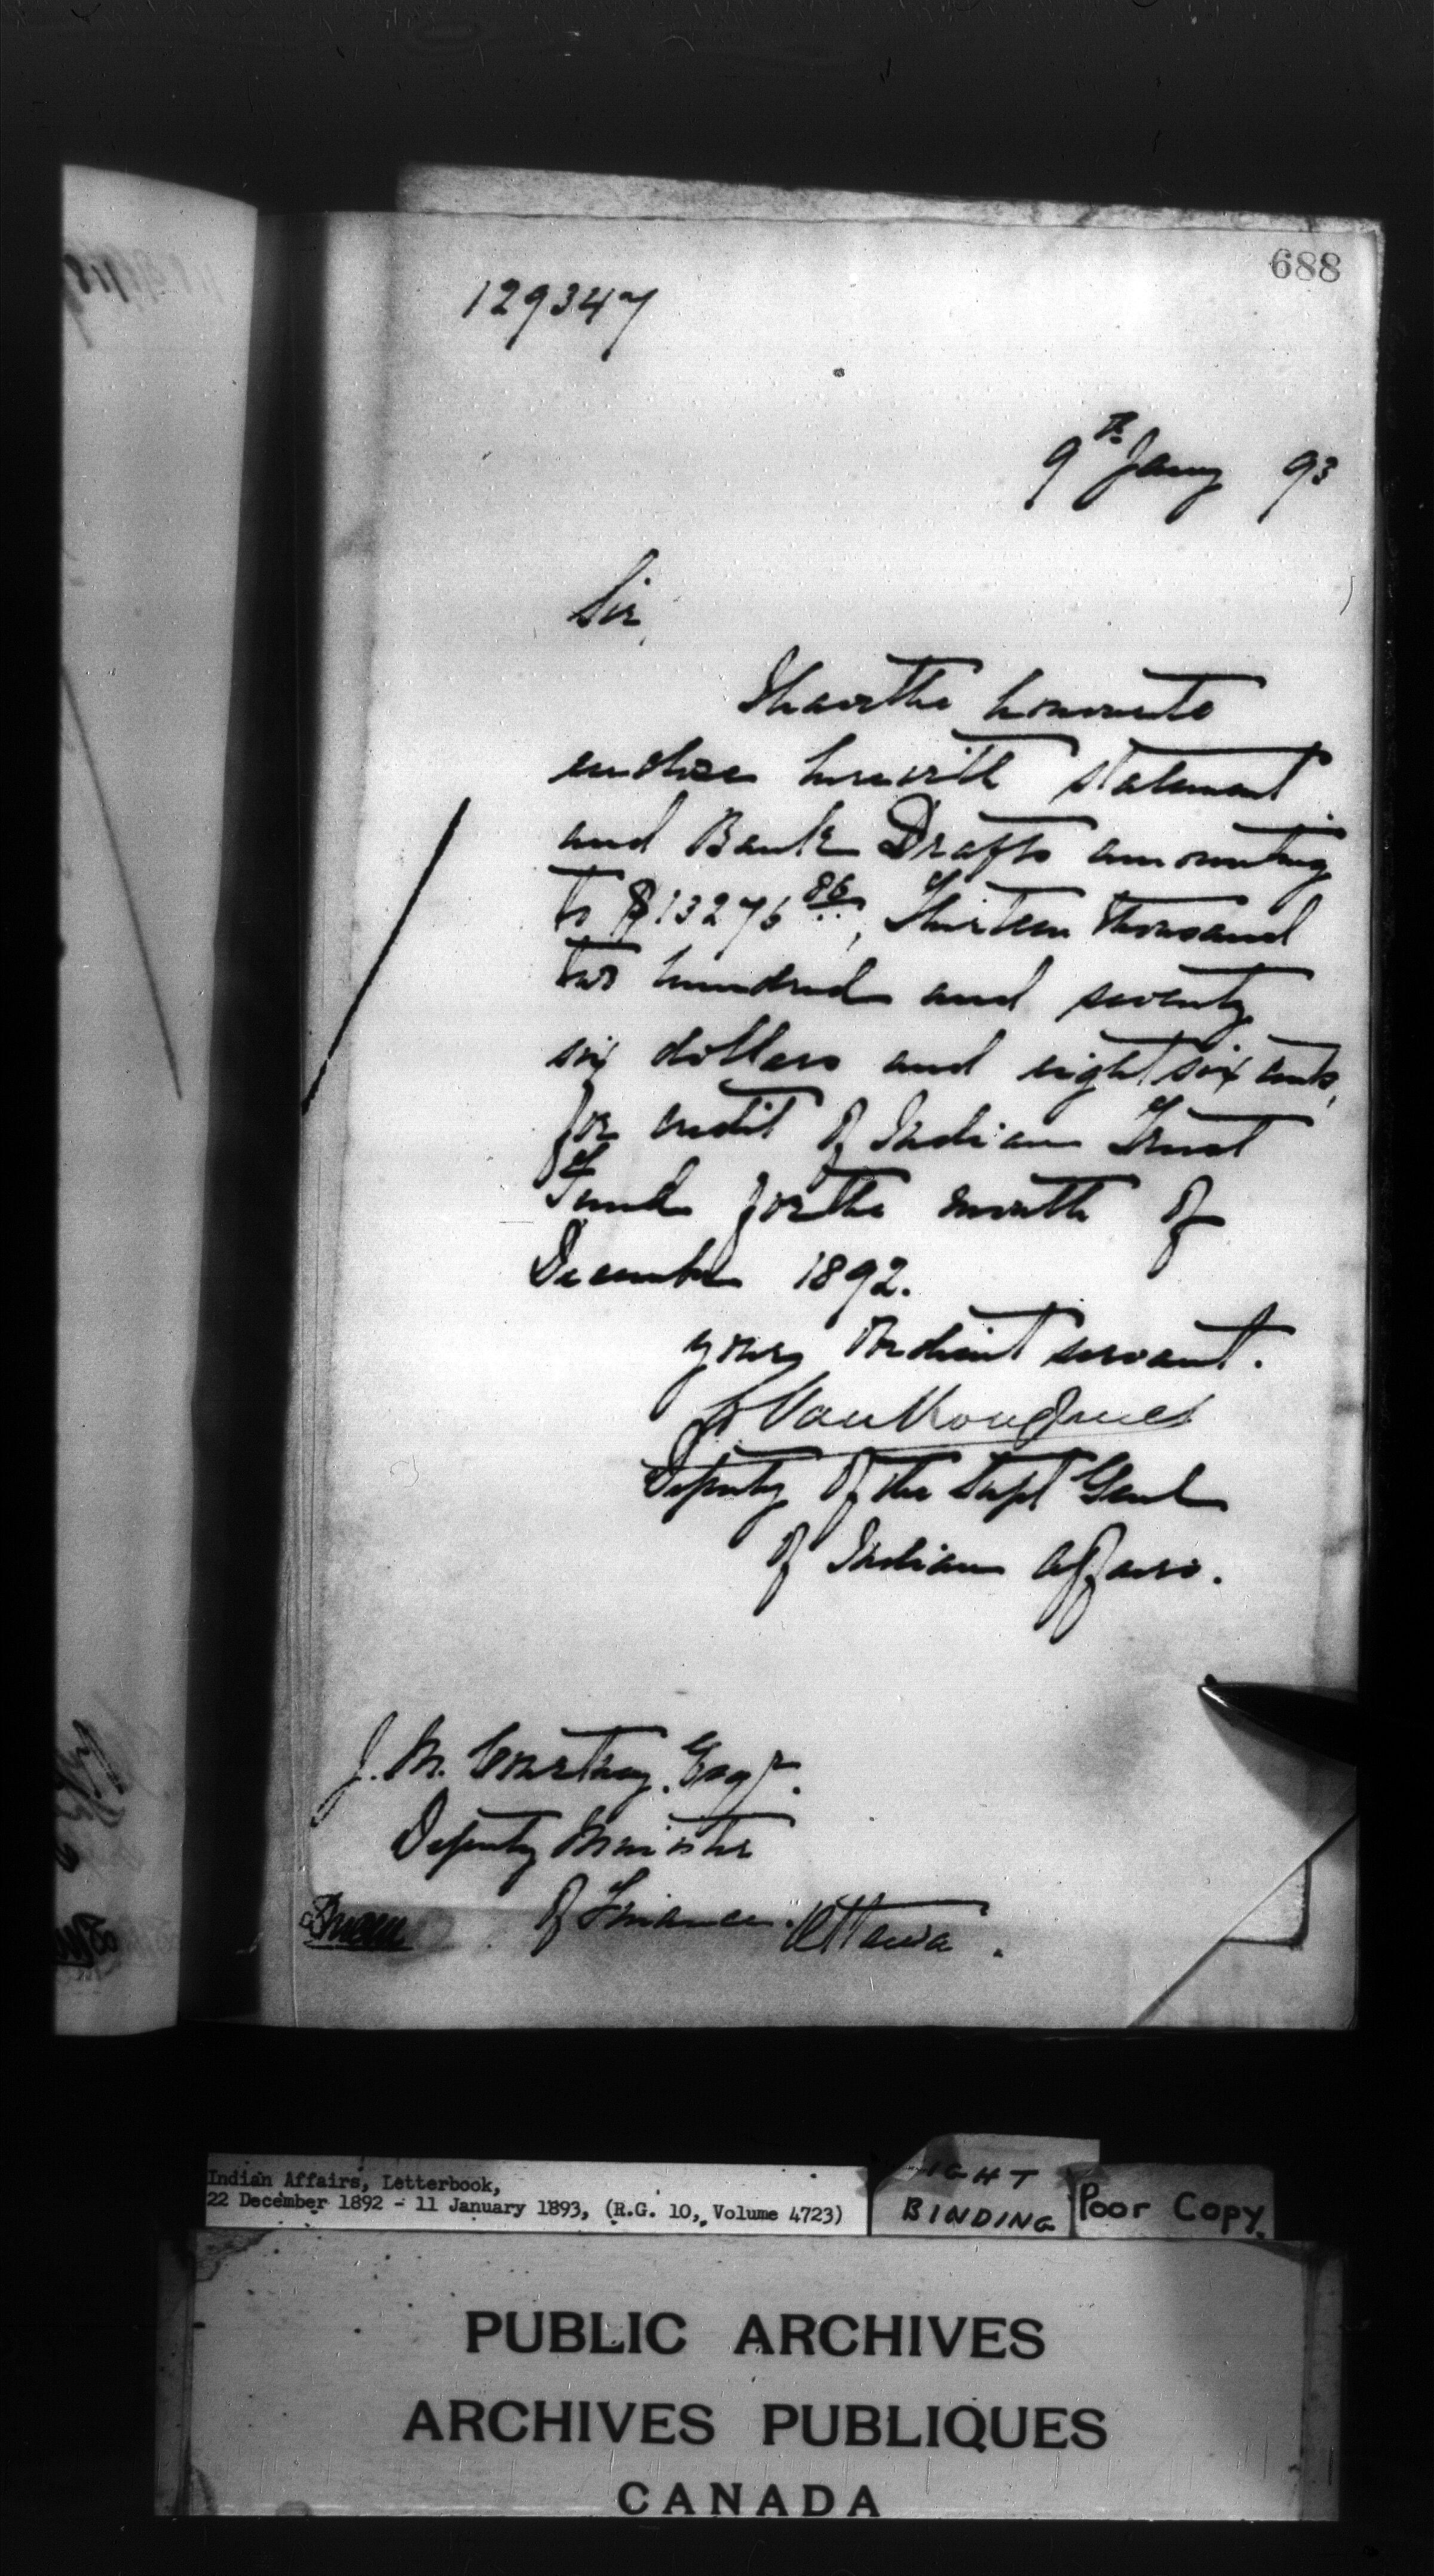 688
129347
9th Jany 93
Sir,
I have the honour to
enclose herewith statement
and Bank Drafts amounting
to $13276 86, Thirteen thousand
two hundred and seventy
six dollars and eight six cents,
for credit of Indian Trust
Fund for the month of
December 1892.
your obedient servant.
L VanKoughnet
Deputy of the Supt Genl
of Indian Affairs.
J. M. Courtney. Esqr.
Deputy Minister
of Finance. Ottawa.
Indian Affairs, Letterbook,
22 December 1892 - 11 January 1893, (R.G. 10, Volume 4723)
IGHT
BINDING
Poor Copy.
PUBLIC ARCHIVES
ARCHIVES PUBLIQUES
CANADA